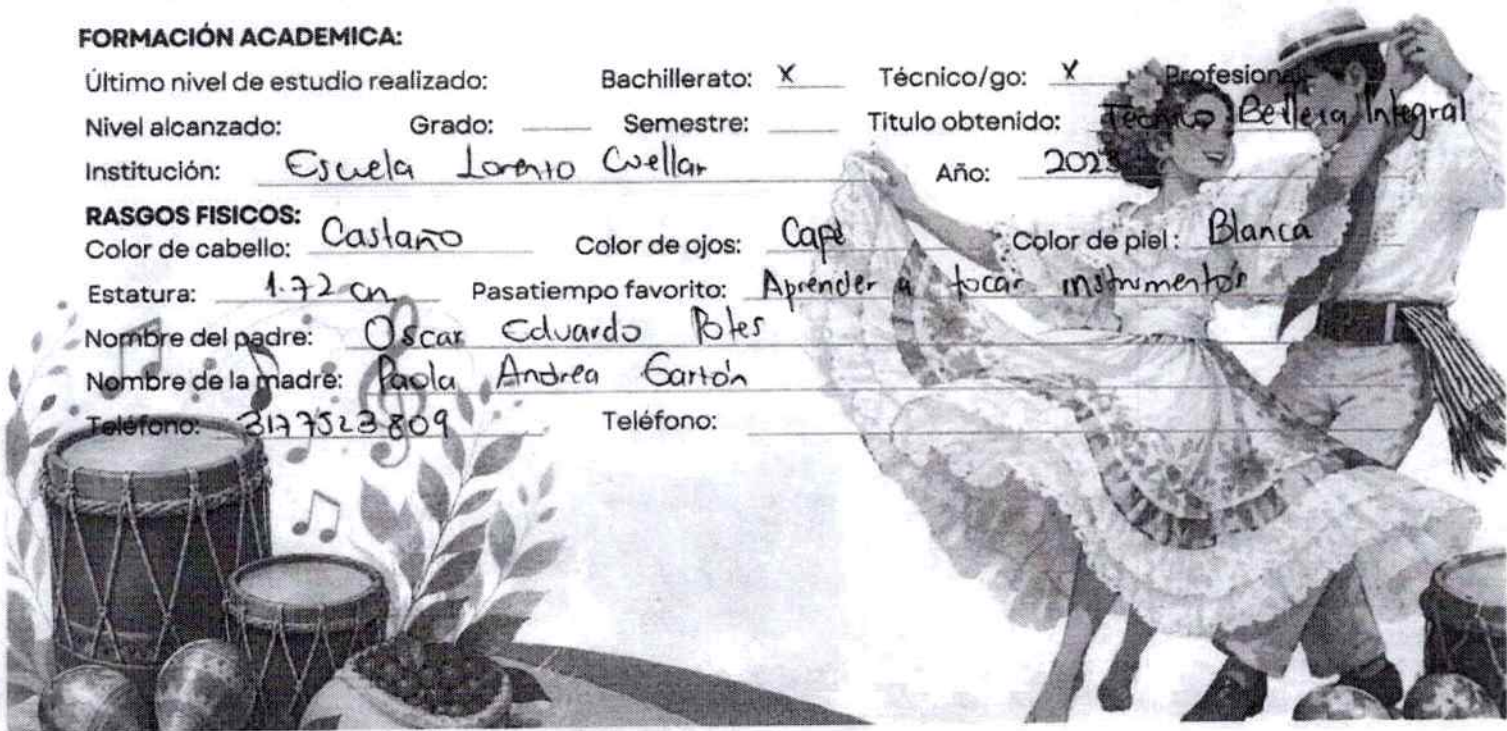 FORMACIÓN ACADEMICA:
Último nivel de estudio realizado: Bachillerato: X Técnico/go: X Profesional:
Nivel alcanzado: Grado: Semestre: Titulo obtenido: Técnico Belleza Integral
Institución: Escuela Lorenzo Cuellar Año: 2023
RASGOS FISICOS:
Color de cabello: Castaño Color de ojos: Café Color de piel: Blanca
Estatura: 1.72 cm Pasatiempo favorito: Aprender a tocar instrumentos
Nombre del padre: Oscar Eduardo Potes
Nombre de la madre: Paola Andrea Garzón
Teléfono: 3177523809 Teléfono: